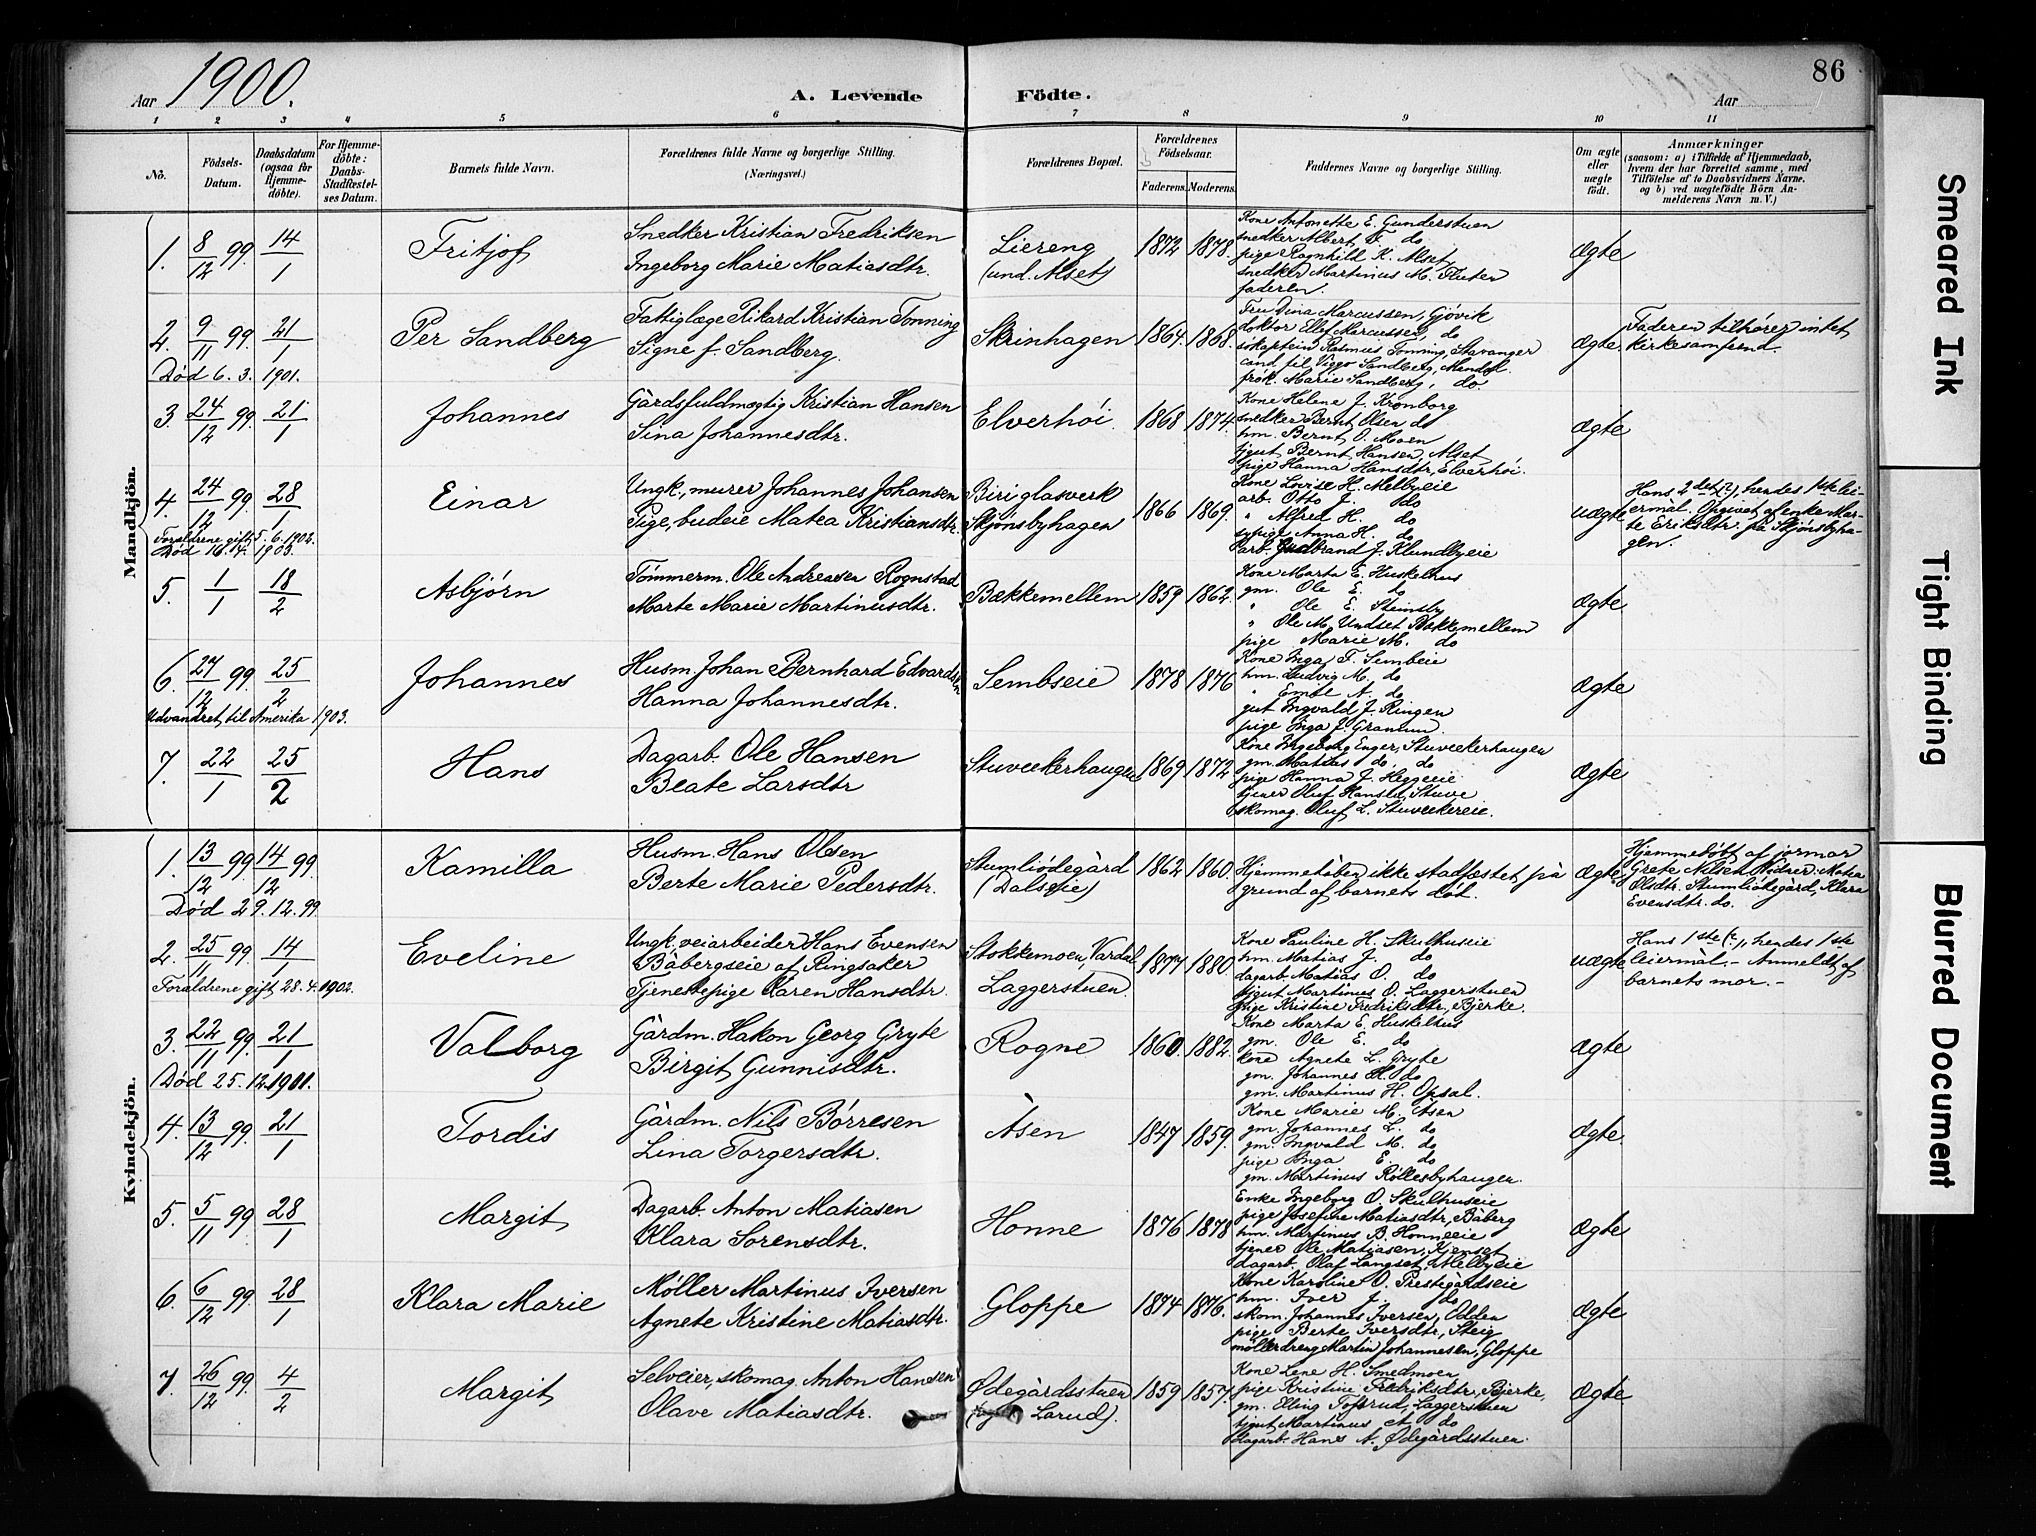 Aar 1900. A. Levende Födte. Aar 86
1 2 3 4 5 6 7 8 9 10 11
No.
Födsels-Datum.
Daabsdatum (ogsaa for Hjemmedöbte).
For Hjemmedöbte: Daabs-Stadfæstelses Datum.
Barnets fulde Navn.
Forældrenes fulde Navne og borgerlige Stilling.
(Næringsvei.)
Forældrenes Bopæl.
Forældrenes Födselsaar.
Faderens. Moderens.
Faddernes Navne og borgerlige Stilling.
Om ægte eller uægte födt.
Anmærkninger
(saasom: a) i Tilfælde af Hjemmedaab, hvem der har forrettet samme, med Tilföielse af to Daabsvidners Navne, og b) ved uægtefödte Börn Anmelderens Navn m. V.)
Mandkjön.
1. 8/12 99. 14/1 Fritjof
Snedker Kristian Fredriksen
Ingeborg Marie Matiasdtr.
Liereng
(und. Alset)
1872 1878.
Kone Antonette E. Gunderstuen
snedker Albert F. do
pige Ragnhild K. Alset
snedker Martinus M. Fluten
faderen.
Ægte
2. 9/11 99. 21/1 Per Sandberg
Død 6. 3. 1901.
Fattiglæge Rikard Kristian Tonning
Signe f. Sandberg.
Skrinhagen
1864. 1868.
Fru Dina Marcussen, Gjøvik
doktor Ellef Marcussen, do
sskaptein Rasmus Tonning, Stavanger
cand. fil. Viggo Sandberg, Mendal
frøk. Marie Sandberg, do.
Ægte.
Faderen tilhører intet
kirkesamfund.
3. 24/12 99. 21/1 Johannes
Gårdsfuldmægtig Kristian Hansen
Sina Johannesdtr.
Elverhöi.
1868 1874.
Kone Helene J. Kronborg
snedker Bernt Olsen do
hm. Bernt O. Moen
tjgut Bernt Hansen, Alset
pige Hanna Hansdtr, Elverhöi.
Ægte
4. 24/12 99. 28/1 Einar
Forældrene gift 5. 6. 1902.
Død 16. 4. 1903.
Ungk., murer Johannes Johansen
Pige, budeie Matea Kristiansdtr.
Biri glasverk
Skjønsbyhagen
1866 1869.
Kone Lovise H. Melbyeie
arb. Otto J. do
" Alfred H. do
sypige Anna H. do
arb. Gudbrand J. Klundbyeie
uægte
Hans 2det (?), hendes 1ste lei-
ermål. Opgivet af enke Mar-
te Eriksdtr. på Skjønsbyha-
gen.
5. 1/1 18/2 Asbjørn
Tömmerm. Ole Andreasen Rognstad
Marte Marie Martinusdtr.
Bækkemellem
1859 1862.
Kone Marta E. Huskelhus
gm. Ole E. do
" Ole E. Steinsby
" Ole M. Undset Bækkemellem
pige Marie M. do
Ægte
6. 27/12 99. 25/2 Johannes
Udvandret til Amerika 1903.
Husm. Johan Bernhard Edvardsen
Hanna Johannesdtr.
Sembseie
1878 1876
Kone Inga F. Sembeie
hm. Ludvig M. do
" Emil A. do
gut Ingvald J. Ringen
pige Inga J. Granlund.
Ægte
7. 22/1 25/2 Hans
Dagarb. Ole Hansen
Beate Larsdtr
Stuveekerhaugen
1869 1872.
Kone Ingeborg Enger, Stuveekerhaugen
gm. Matias do. do
pige Hanna J. Heggeeie
tjener Oluf Hansen, Stuve
skomag. Oluf L. Stuveekereie.
Ægte
Kvindekjön.
1. 13/12 99 14/12 99. Kamilla
Død 29. 12. 99.
Husm. Hans Olsen
Berte Marie Pedersdtr.
Stumliødegård
(Dalseie)
1862 1860.
Hjemmedåben ikke stadfæstet på
grund af barnets död.
Ægte
Hjemmedöbt af jormor
Grete Nilsen. Vidner: Matea
Olsdtr. Stumliødegård, Klara
Evensdtr. do.
2. 25/11 99. 14/1 Eveline
Forældrene gift 28. 4. 1902.
Ungk., veiarbeider Hans Evensen
Båbergseie af Ringsaker
Tjenestepige Karen Hansdtr.
Stokkemoen, Vardal
Laggerstuen.
1877 1880.
Kone Pauline H. Skulhuseie
hm. Matias J. do
dagarb. Matias O. do
tjgut Martinus O. Laggerstuen
pige Kristine Fredriksdtr, Bjerke.
uægte
Hans 1ste (?), hendes 1ste
leiermål. – Anmeldt af
barnets mor. –
3. 22/11 99. 21/1 Valborg
Død 25. 12. 1901.
Gårdm. Hakon Georg Gryte
Birgit Gunnisdtr.
Rogne
1860. 1882.
Kone Marta E. Huskelhus
gm. Ole E. do
kone Agnete L. Gryte
gm. Johannes H. do
gm. Martinus H. Opsal.
Ægte
4. 13/12 99. 21/1 Tordis
Gårdm. Nils Børresen
Lina Torgersdtr.
Åsen
1847 1859.
Kone Marie M. Åsen
gm. Johannes L. do
gm. Ingvald M. do
pige Inga E. do
gm. Martinus Røllesbyhaugen.
Ægte
5. 5/11 99 28/1 Margit
Dagarb. Anton Matiasen
Klara Sorensdtr.
Honne
1876 1878
Enke Ingeborg O. Skulhuseie
pige Josefine Matiasdtr, Båberg
hm. Martinus B. Honneeie
tjener Ole Matiasen, Kjenset
dagarb. Olaf Langset, Melbyeie
Ægte
6. 6/12 99. 28/1 Klara Marie
Møller Martinus Iversen
Agnete Kristine Matiasdtr.
Gloppe
1874 1876.
Kone Karoline O. Prestegårdseie
hm. Iver J. do
skom. Johannes Iversen, Olden
pige Berte Iversdtr, Steig
møllerdreng Martin Johannesen, Gloppe
Ægte
7. 26/12 99. 4/2 Margit
Selveier, skomag. Anton Hansen
Olave Matiasdtr.
Ødegårdsstuen
Larud).
1859 1857.
Kone Lene H. Smedmoen
pige Kristine Fredriksdtr, Bjerke,
gm. Elling Tofsrud, Laggerstuen
tjgut Martinus A. do
dagarb. Hans A. Ødegårdsstuen.
Ægte
Smeared Ink
Tight Binding
Blurred Document